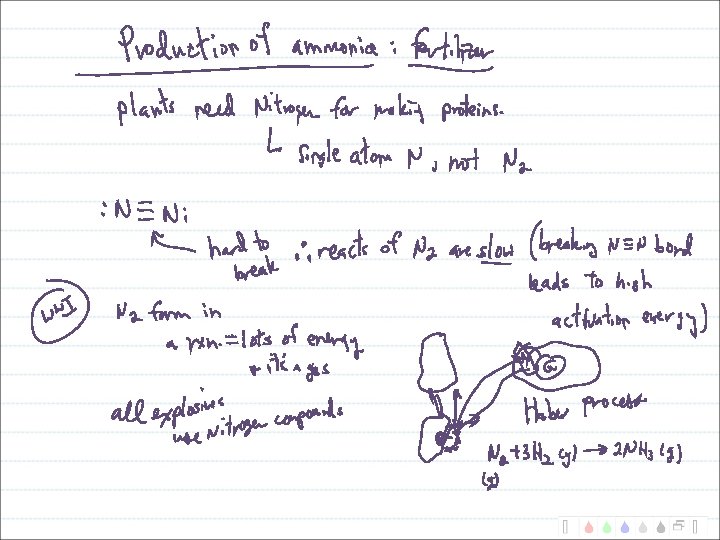 Production of ammonia : fertilizer
plants need Nitrogen for making proteins.
single atom N, not N2
:N≡N:
hard to break ∴ reacts of N2 are slow (breaking N≡N bond
leads to high
activation energy)
WWI
N2 form in
a rxn. = lots of energy
+ it's a gas
all explosives
use Nitrogen compounds
Haber process
N2 + 3H2 (g) → 2NH3 (g)
(g)